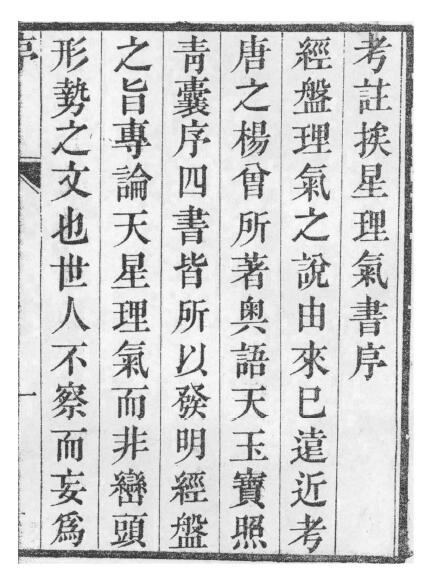 考註挨星理氣書序
經盤理氣之說由來已遠近考
唐之楊曾所著奧語天玉寶照
靑囊序四書皆所以發明經盤
之旨專論天星理氣而非巒頭
形勢之文也世人不察而妄爲
序
一